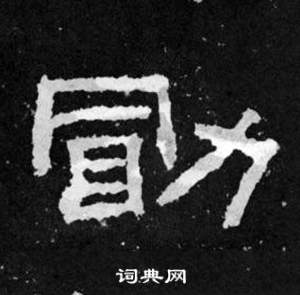 勖
词典网